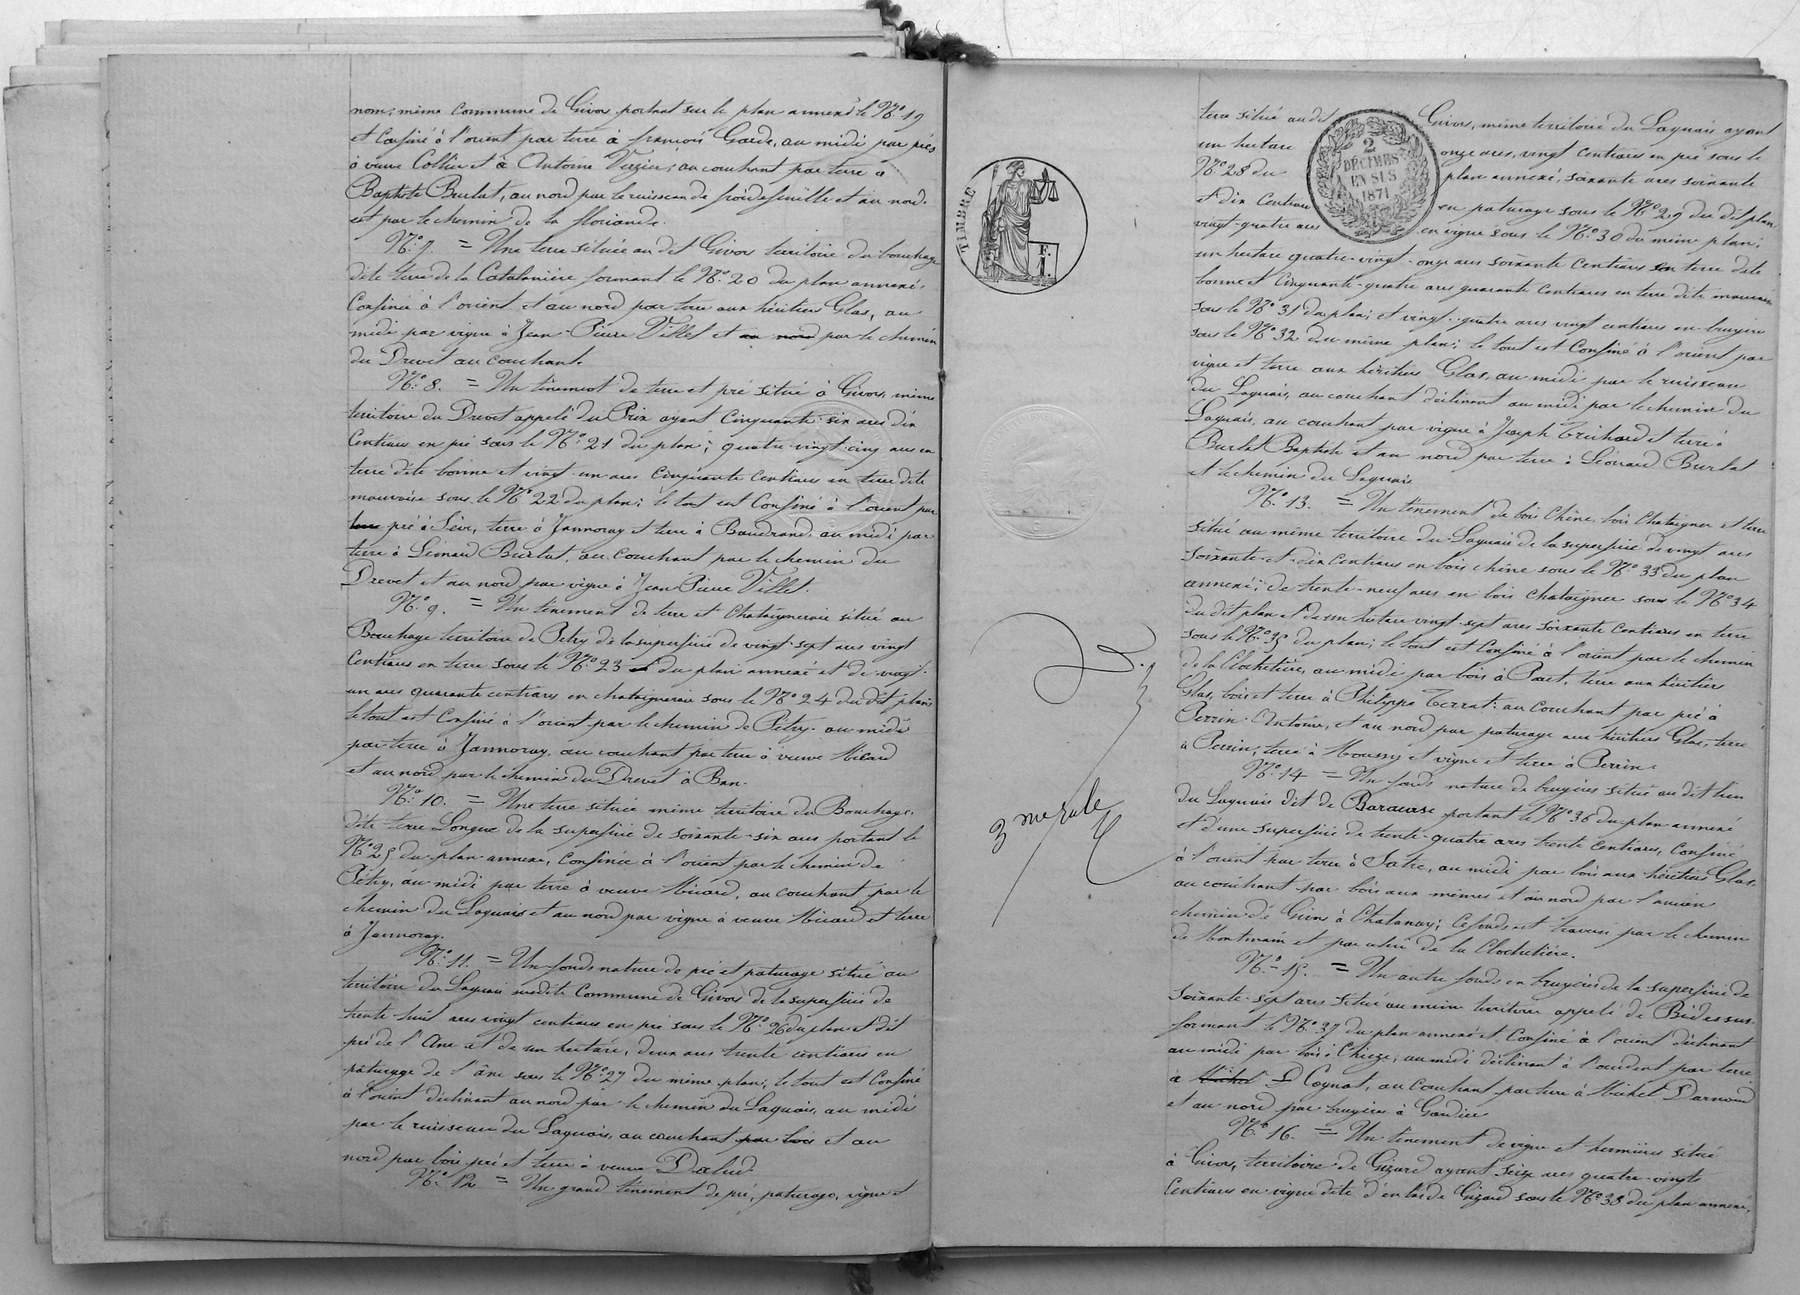 nom, même Commune de Givors portant sur le plan annexé le N.º 19
et Confiné à l'orient par terre à françois Garde, au midi par prés
à veuve Collin et à Antoine Vezin, au couchant par terre à
Baptiste Burlat, au nord par le ruisseau de froidefeuille et au nord-
est par le chemin de la floriande.
N.º 7. = Une terre située au dit Givors territoire du bouchage
dite terre de la Catalonière formant le N.º 20 du plan annexé.
Confinée à l'orient et au nord par terre aux héritiers Glas, au
midi par vigne à Jean-Pierre Villet et au nord par le chemin
du Drevet au couchant.
N.º 8. = Un tènement de terre et pré situé à Givors, même
territoire du Drevet appelé du Prix ayant Cinquante-six ares dix
Centiares en pré sous le N.º 21 du plan; quatre-vingt-cinq ares en
terre dite bonne et vingt-un ares Cinquante Centiares en terre dite
mauvaise sous le N.º 22 du plan; le tout est Confiné à l'orient par
terre pré à Sève, terre à Jannoray et terre à Baudrand, au midi par
terre à Léonard Burlat, au Couchant par le chemin du
Drevet et au nord par vigne à Jean Pierre Villet.
N.º 9. = Un tènement de terre et Chataigneraie situé au
Bouchage territoire de Petry de la superficie de vingt-sept ares vingt
Centiares en terre sous le N.º 23 et du plan annexé et de vingt-
un ares quarante centiares en chataigneraie sous le N.º 24 du dit plan
le tout est Confiné à l'orient par le chemin de Pétry, au midi
par terre à Jannoray, au couchant par terre à veuve Micard
et au nord par le chemin du Drevet à Ban.
N.º 10. = Une terre située même territoire du Bouchage.
dite terre Longue de la superficie de soixante-six ares portant le
N.º 25 du plan annexé, Confinée à l'orient par le chemin de
Pétry, au midi par terre à veuve Micard, au couchant par le
chemin du Laguais et au nord par vigne à veuve Micard et terre
à Jannoray.
N.º 11. = Un fonds nature de pré et paturage situé au
territoire du Laguais susdite Commune de Givors de la superficie de
trente-huit ares vingt centiares en pré sous le N.º 26 du plan et dit
pré de l'Ane et de un hectare, deux ares trente centiares en
pâturage de l'âne sous le N.º 27 du même plan; le tout est Confiné
à l'orient déclinant au nord par le chemin du Laguais, au midi
par le ruisseau du Laguais, au couchant par bois et au
nord par bois pré et terre à veuve Dalud.
N.º 12 = Un grand tènement de pré, paturage, vigne et
TIMBRE
F.
I.
3me role
terre situé au dit Givors, même territoire du Laguais ayant
un hectare onze ares, vingt centiares en pré sous le
N.º 28 du plan annexé, soixante ares soixante
et dix Centiares en paturage sous le N.º 29 du dit plan
vingt-quatre ares en vigne sous le N.º 30 du même plan;
2
DÉCIMES
EN SUS
1871
un hectare quatre-vingt-onze ares soixante Centiares en terre dite
bonne et Cinquante-quatre ares quarante Centiares en terre dite mauvaise
sous le N.º 31 du plan; et vingt-quatre ares vingt centiares en bruyère
sous le N.º 32 du même plan; le tout est Confiné à l'orient par
vigne et terre aux héritiers Glas, au midi par le ruisseau
du Laguais, au couchant déclinant au midi par le chemin du
Laguais, au couchant par vigne à Joseph Trichard et terre à
Burlat Baptiste et au nord par terre à Léonard Burlat
et le chemin du Laguais
N.º 13. = Un tènement de bois Chêne, bois Chataignier et terre
situé au même territoire du Laguais de la superficie de vingt ares
soixante-et-dix Centiares en bois chêne sous le N.º 33 du plan
annexé; de trente-neuf ares en bois chataignier sous le N.º 34
du dit plan et de un hectare vingt-sept ares soixante Centiares en terre
sous le N.º 35 du plan; le tout est Confiné à l'orient par le chemin
de la Clochetière, au midi par bois à Part, terre aux héritiers
Glas, bois et terre à Philippe Terrat, au Couchant par pré à
Perrin Antoine, et au nord par paturage aux héritiers Glas, terre
à Perrin, terre à Moussy et vigne et terre à Perrin.
N.º 14 = Un fonds nature de bruyères situé au dit lieu
du Laguais dit de Baracase portant le N.º 36 du plan annexé
et d'une superficie de trente-quatre ares trente Centiares, Confiné
à l'orient par terre à Satre, au midi par bois aux héritiers Glas,
au couchant par bois aux mêmes et au nord par l'ancien
chemin de Givors à Chatanay; Ce fonds est traversé par le chemin
de Montrond et par celui de la Clochetière.
N.º 15. = Un autre fonds en bruyères de la superficie de
soixante-sept ares situé au même territoire appelé de Bidessus
formant le N.º 37 du plan annexé et Confiné à l'orient déclinant
au midi par bois à Chieze, au midi déclinant à l'occident par terre
à Michel D Cognat, au Couchant par terre à Michel Darnoud
et au nord par bruyères à Gaudier
N.º 16. = Un tènement de vigne et hermures situé
à Givors, territoire de Gizard ayant seize ares quatre-vingts
Centiares en vigne dite d'en bas de Gizard sous le N.º 38 du plan annexé,